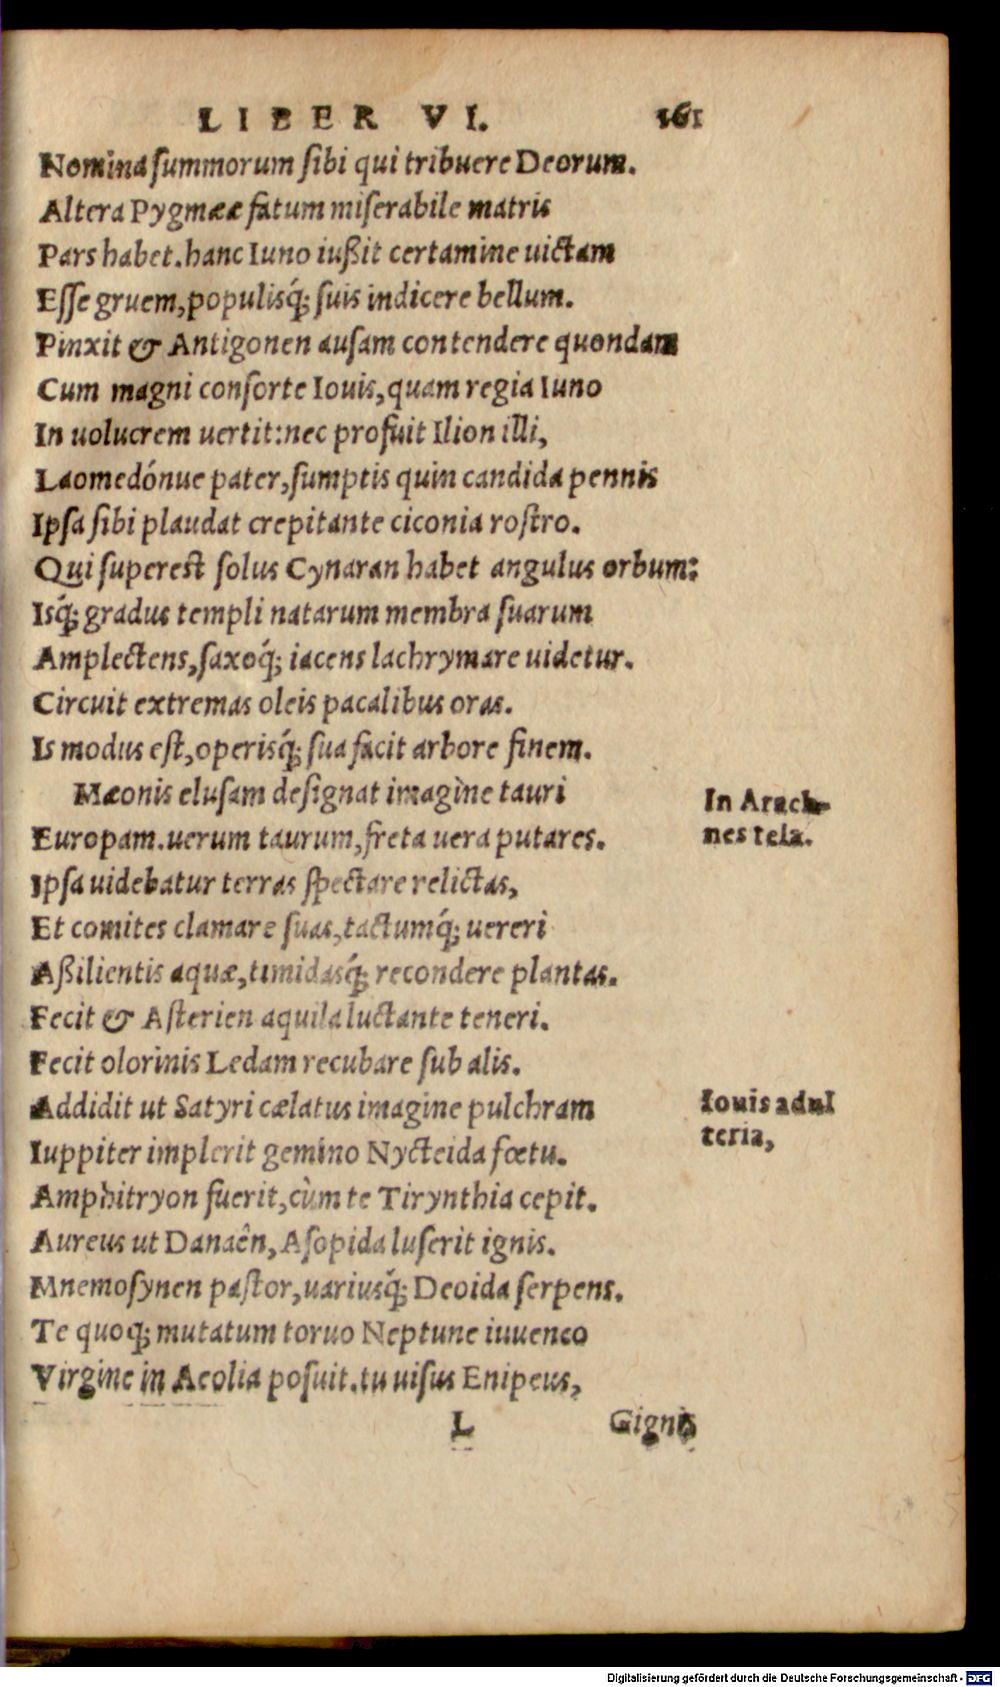 LIBER VI. 161
Nomina ſummorum ſibi qui tribuere Deorum.
Altera Pygmææ fatum miſerabile matris
Pars habet. hanc Iuno iußit certamine uictam
Eſſe gruem, populisq́; ſuis indicere bellum.
Pinxit & Antigonen auſam contendere quondam
Cum magni conſorte Iouis, quam regia Iuno
In uolucrem uertit: nec profuit Ilion illi,
Laomedónue pater, ſumptis quin candida pennis
Ipſa ſibi plaudat crepitante ciconia roſtro.
Qui ſupereſt ſolus Cynaran habet angulus orbum:
Isq́; gradus templi natarum membra ſuarum
Amplectens, ſaxoq́; iacens lachrymare uidetur.
Circuit extremas oleis pacalibus oras.
Is modus eſt, operisq́; ſua facit arbore finem.
Mæonis eluſam deſignat imagine tauri
In Arach-
Europam. uerum taurum, freta uera putares.
nes tela.
Ipſa uidebatur terras ſpectare relictas,
Et comites clamare ſuas, tactumq́; uereri
Aßilientis aquæ, timidasq́; recondere plantas.
Fecit & Aſterien aquila luctante teneri.
Fecit olorinis Ledam recubare ſub alis.
Addidit ut Satyri cælatus imagine pulchram
Iouis adul
Iuppiter implerit gemino Nycteida fœtu.
teria,
Amphitryon fuerit, cùm te Tirynthia cepit.
Aureus ut Danaên, Aſopida luſerit ignis.
Mnemoſynen paſtor, uariusq́; Deoida ſerpens.
Te quoq; mutatum toruo Neptune iuuenco
Virgine in Aeolia poſuit. tu uiſus Enipeus,
L Gignis
Digitalisierung gefördert durch die Deutsche Forschungsgemeinschaft - DFG